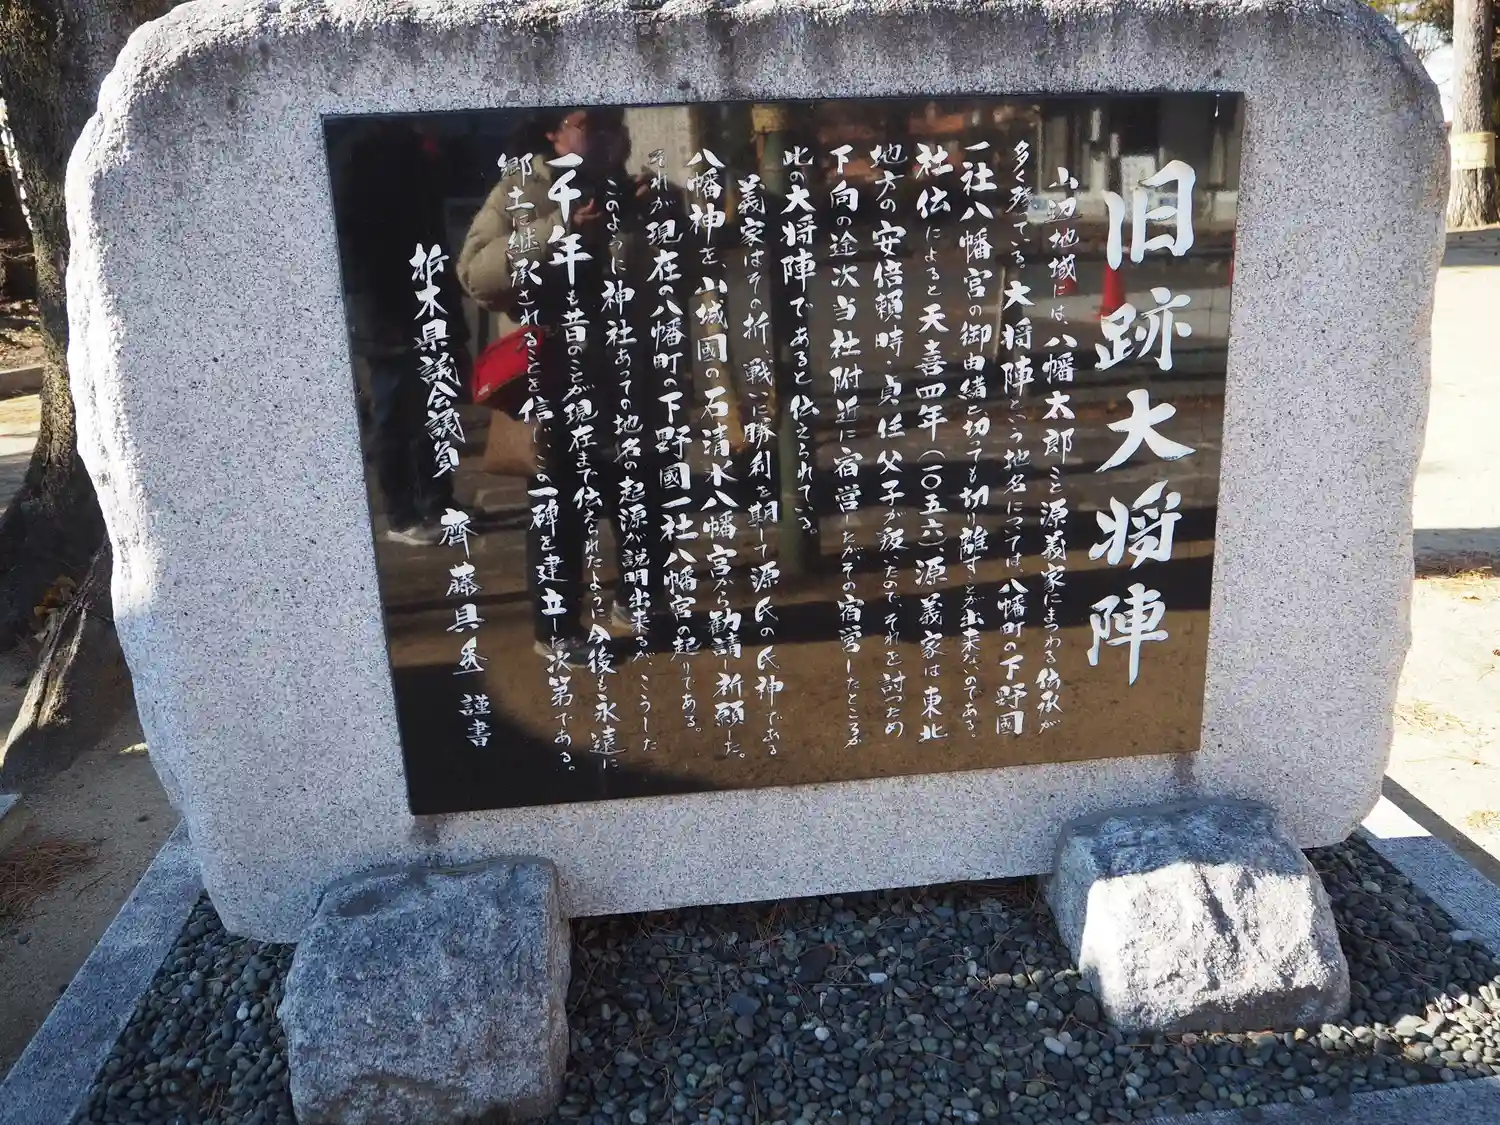 旧跡大将陣
山辺地域には、八幡太郎こと源義家にまつわる伝承が
多く残っている。大将陣という地名については、八幡町の下野國
一社八幡宮の御由緒と切っても切り離すことが出来ないのである。
社伝によると天喜四年(一〇五六)、源義家は東北
地方の安倍頼時・貞任父子が叛したので、それを討つため
下向の途次当社附近に宿営したがその宿営したところが
此の大将陣であると伝えられている。
義家はその折、戦いに勝利を期して源氏の氏神である
八幡神を、山城國の石清水八幡宮から勧請し祈願した。
それが現在の八幡町の下野國一社八幡宮の起りである。
このように神社あっての地名の起源が説明出来るが、こうした
一千年も昔のことが現在まで伝えられたように今後も永遠に
郷土に継承されることを信じ、この一碑を建立した次第である。
栃木県議会議員 齊藤具秀 謹書